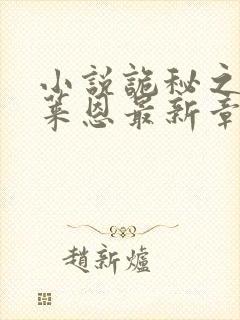 小説詭秘之
萊恩最新章
趙新爐